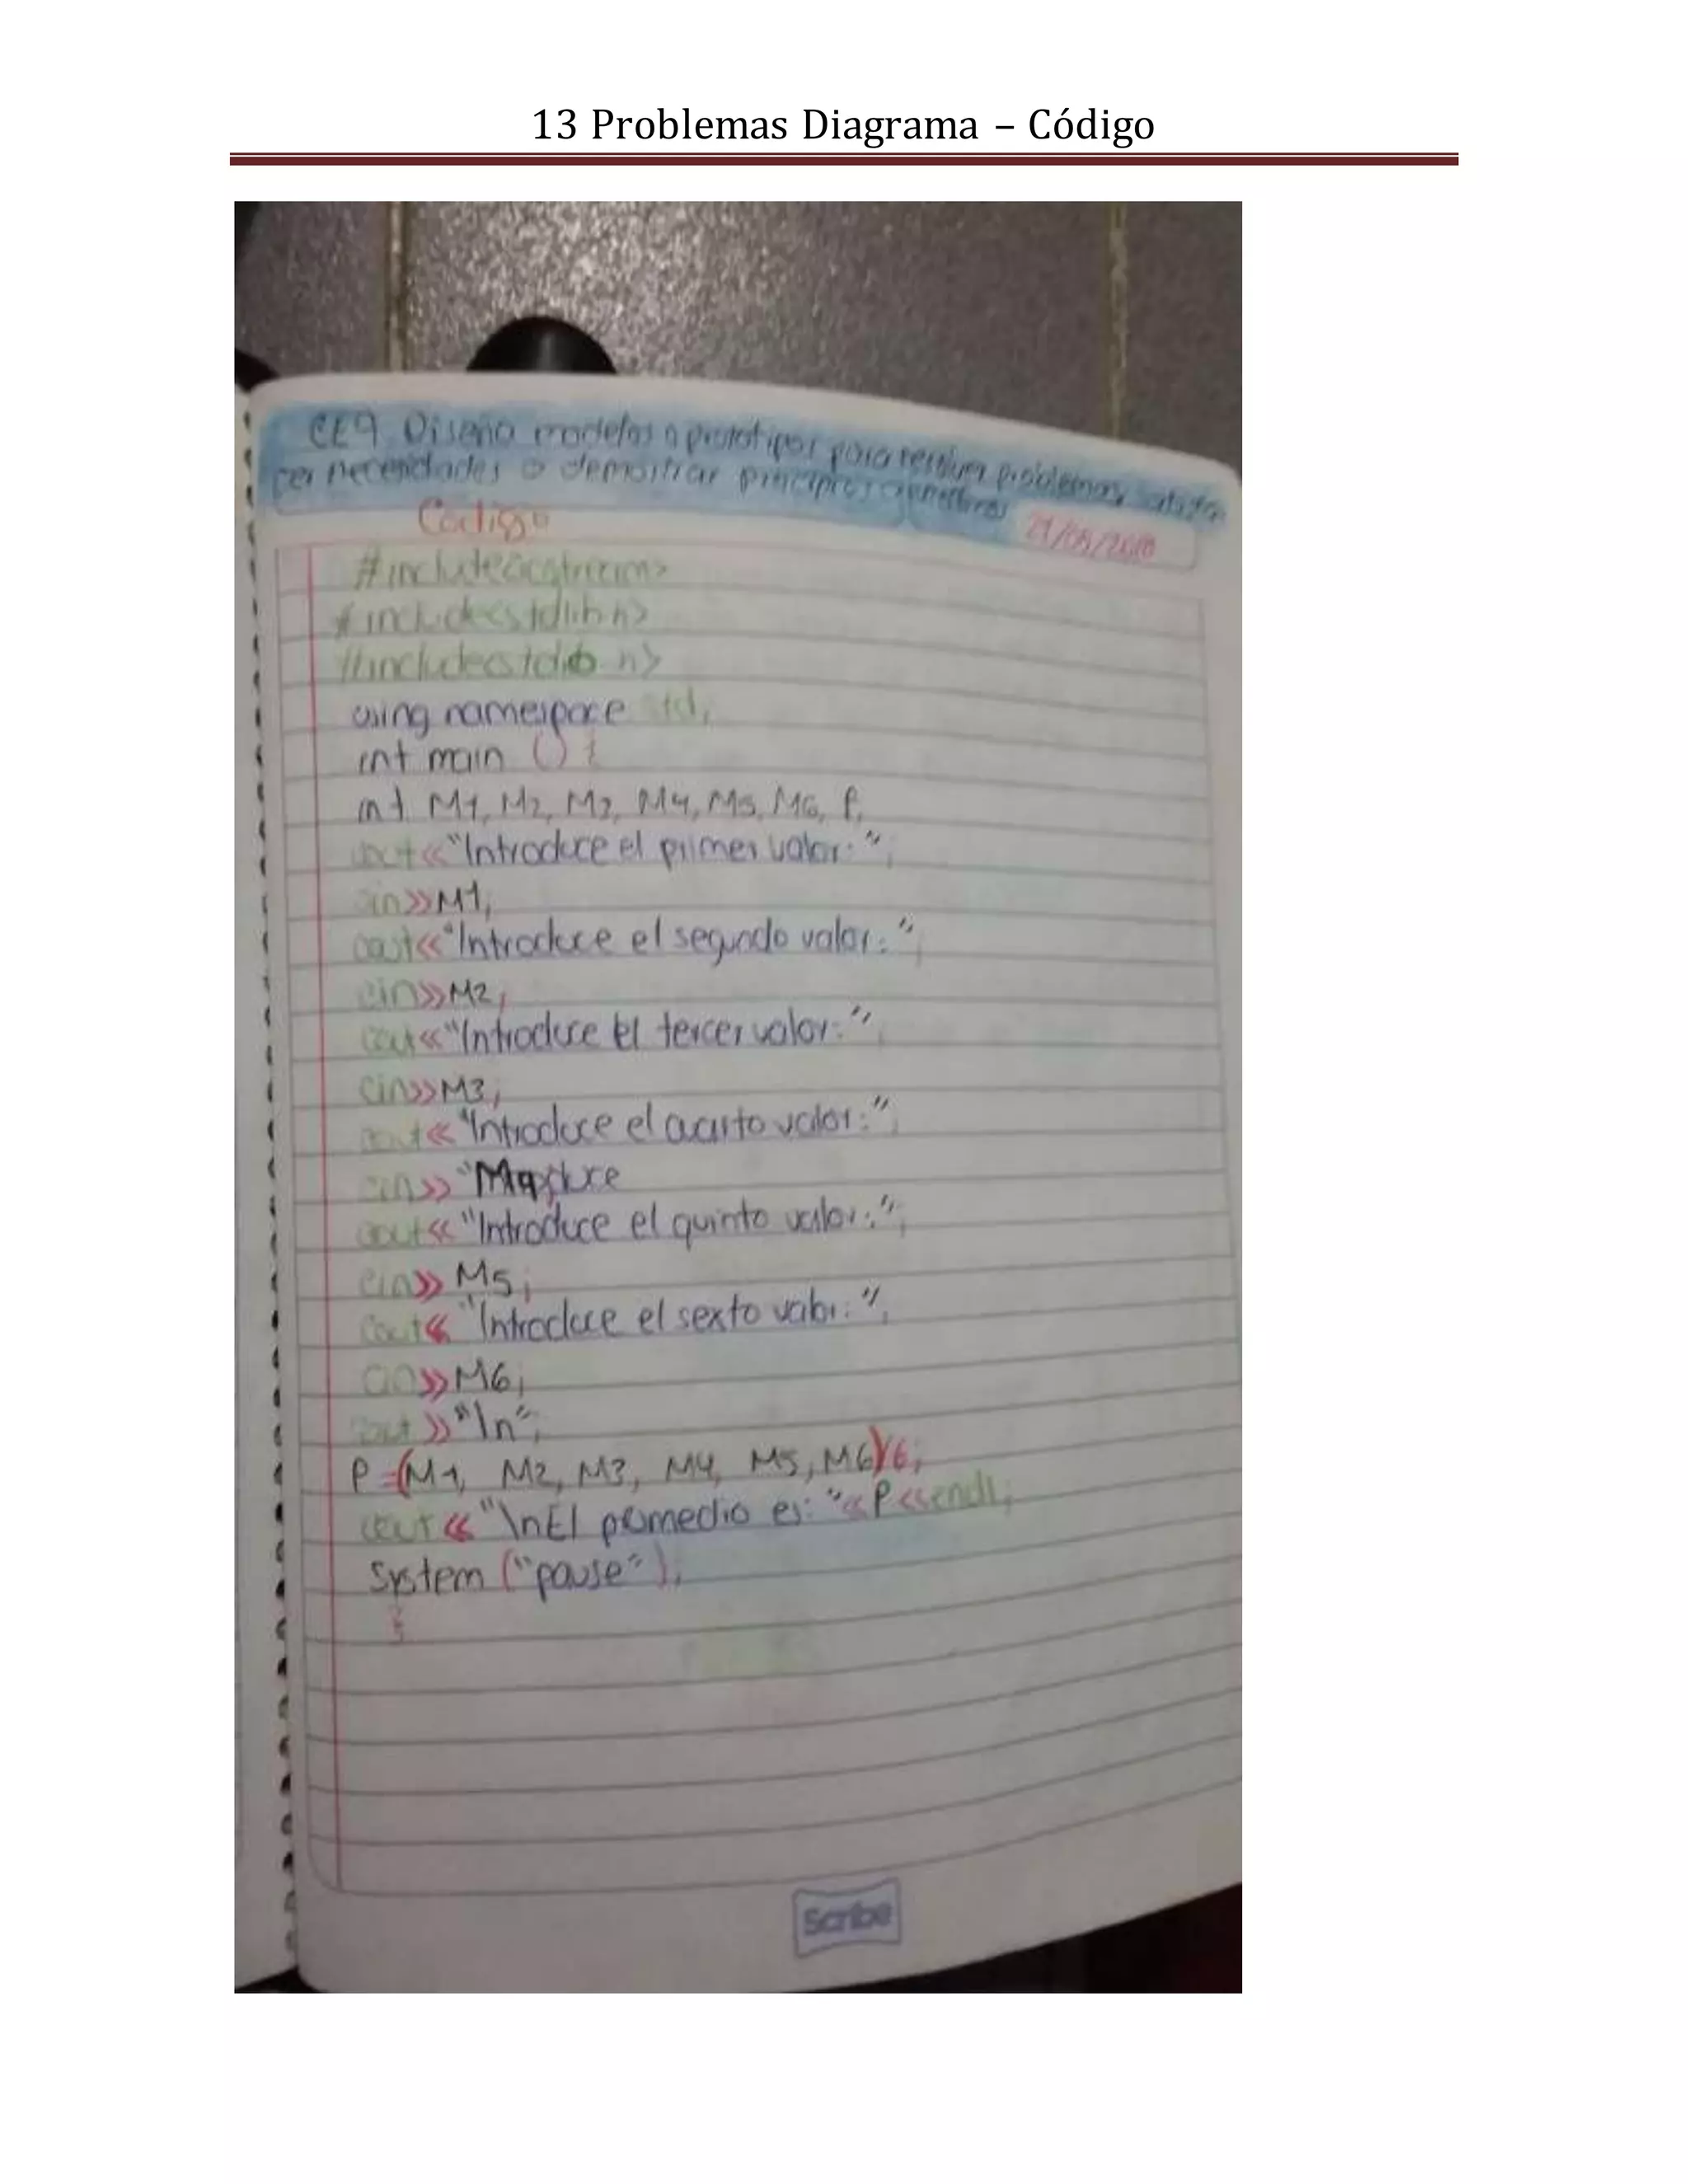 13 Problemas Diagrama – Código
CE9 Diseña modelos o prototipos para resolver problemas, satisfa
cer necesidades o demostrar principios
Codigo
#include<iostream>
#include<stdlib.h>
#include<stdio.h>
using namespace std;
int main () {
int M1, M2, M3, M4, M5, M6, P;
cout<<"Introduce el primer valor: ";
cin>>M1;
cout<<"Introduce el segundo valor: ";
cin>>M2;
cout<<"Introduce el tercer valor: ";
cin>>M3;
cout<<"Introduce el cuarto valor: ";
cin>> "M4;duce
cout<< "Introduce el quinto valor: ";
cin>> M5;
cout<< "Introduce el sexto valor: ";
cin>>M6;
cout >>"\n";
P =(M1, M2, M3, M4, M5, M6)/6;
cout << "\nEl promedio es: "<<P<<endl;
System ("pause");
}
Scribe